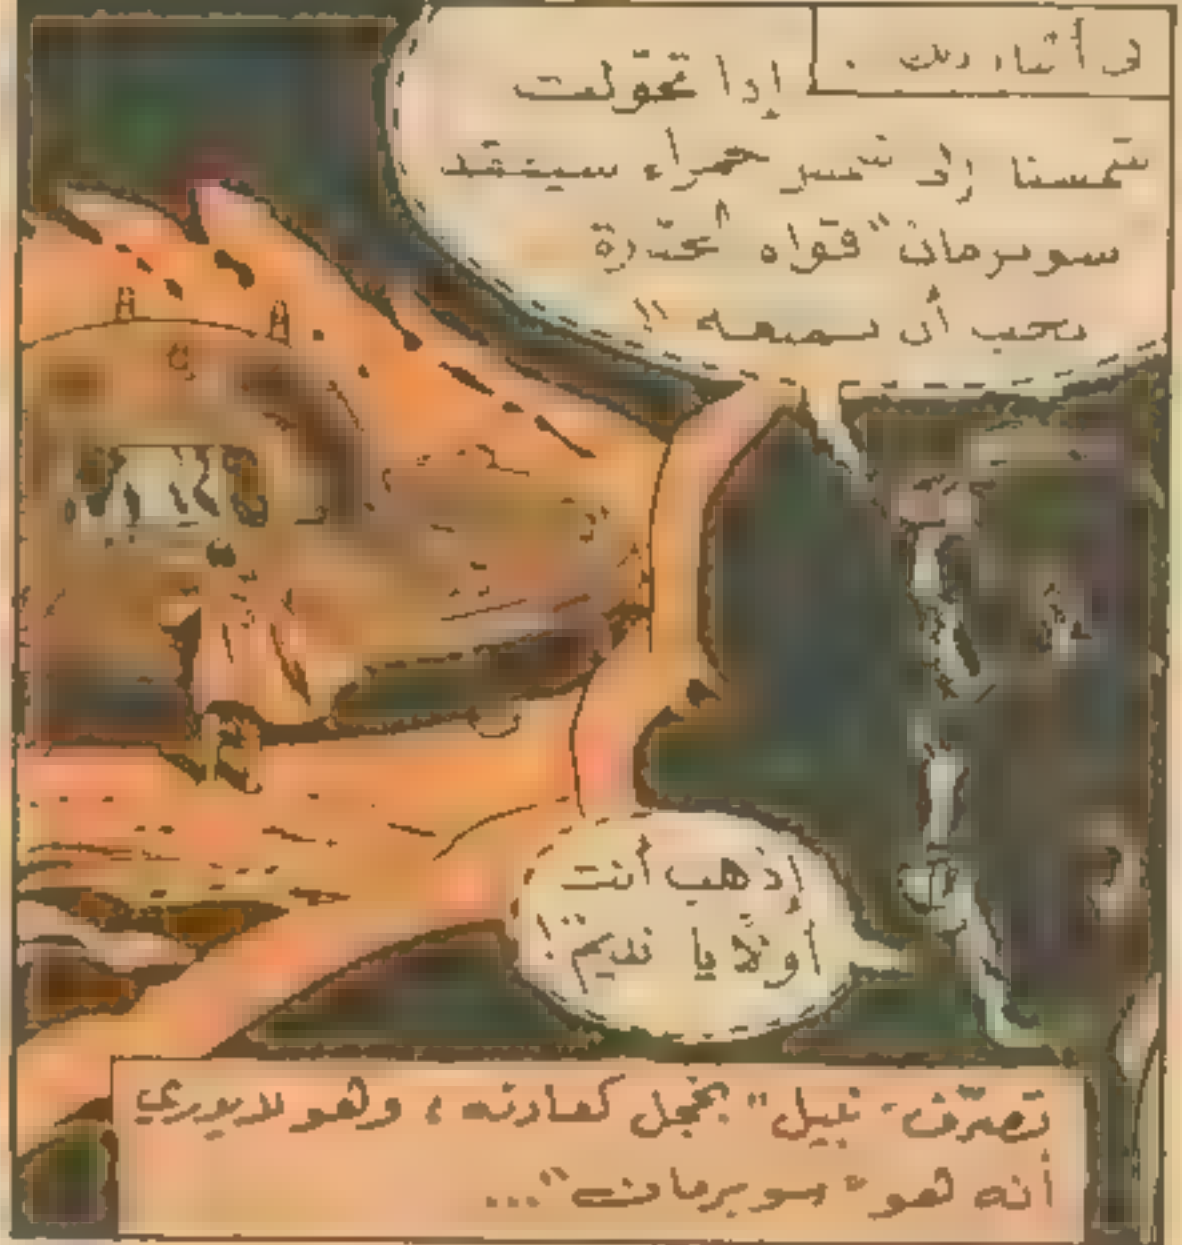 في أثناء ذلك .
إذا تحوّلت
شمسنا إلى شمس حمراء سيفقد
سوبرمان" قواه
يجب أن نمنعه !!
إذهب أنت
أولاً يا نديم !
تصرّف "نبيل" بخجل كعادته ، وهو لا يدري
أنه هو "سوبرمان"...